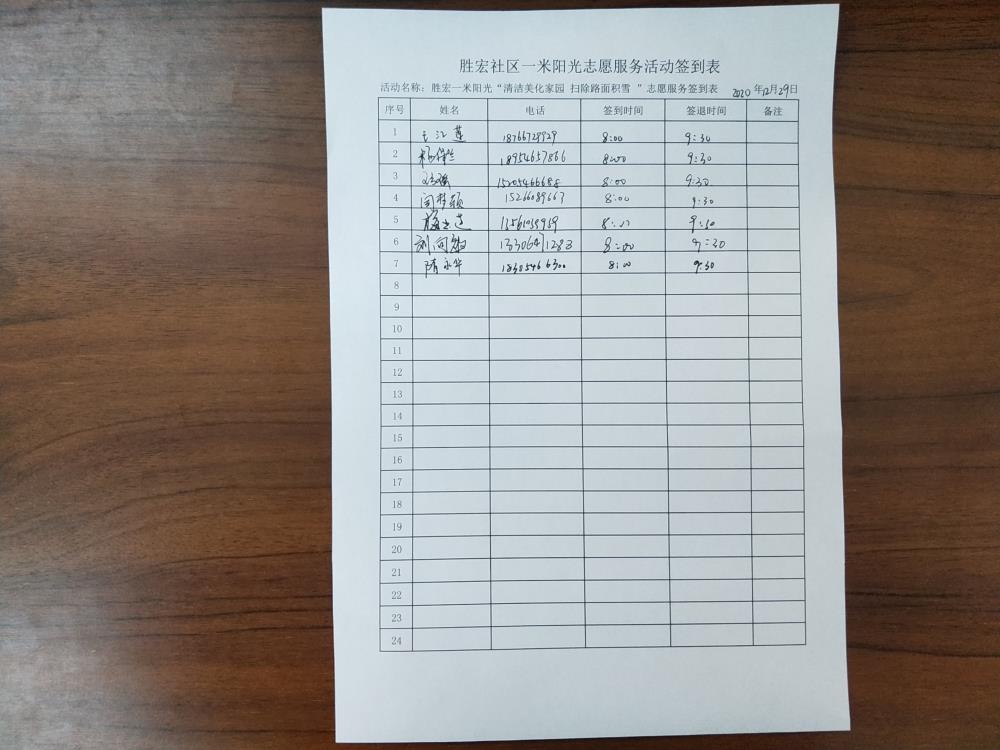 胜宏社区一米阳光志愿服务活动签到表
活动名称：胜宏一米阳光“清洁美化家园 扫除路面积雪 ”志愿服务签到表 2020年12月29日
序号 姓名 电话 签到时间 签退时间 备注
1 王江莲 18766729929 8:00 9:30
2 18954657866 8:00 9:30
3 15205466688 8:00 9:30
4 闫梦颖 15266089663 8:00 9:30
5 8:00 9:30
6 刘向 13306471283 8:00 9:30
7 隋永华 18305466300 8:00 9:30
8
9
10
11
12
13
14
15
16
17
18
19
20
21
22
23
24